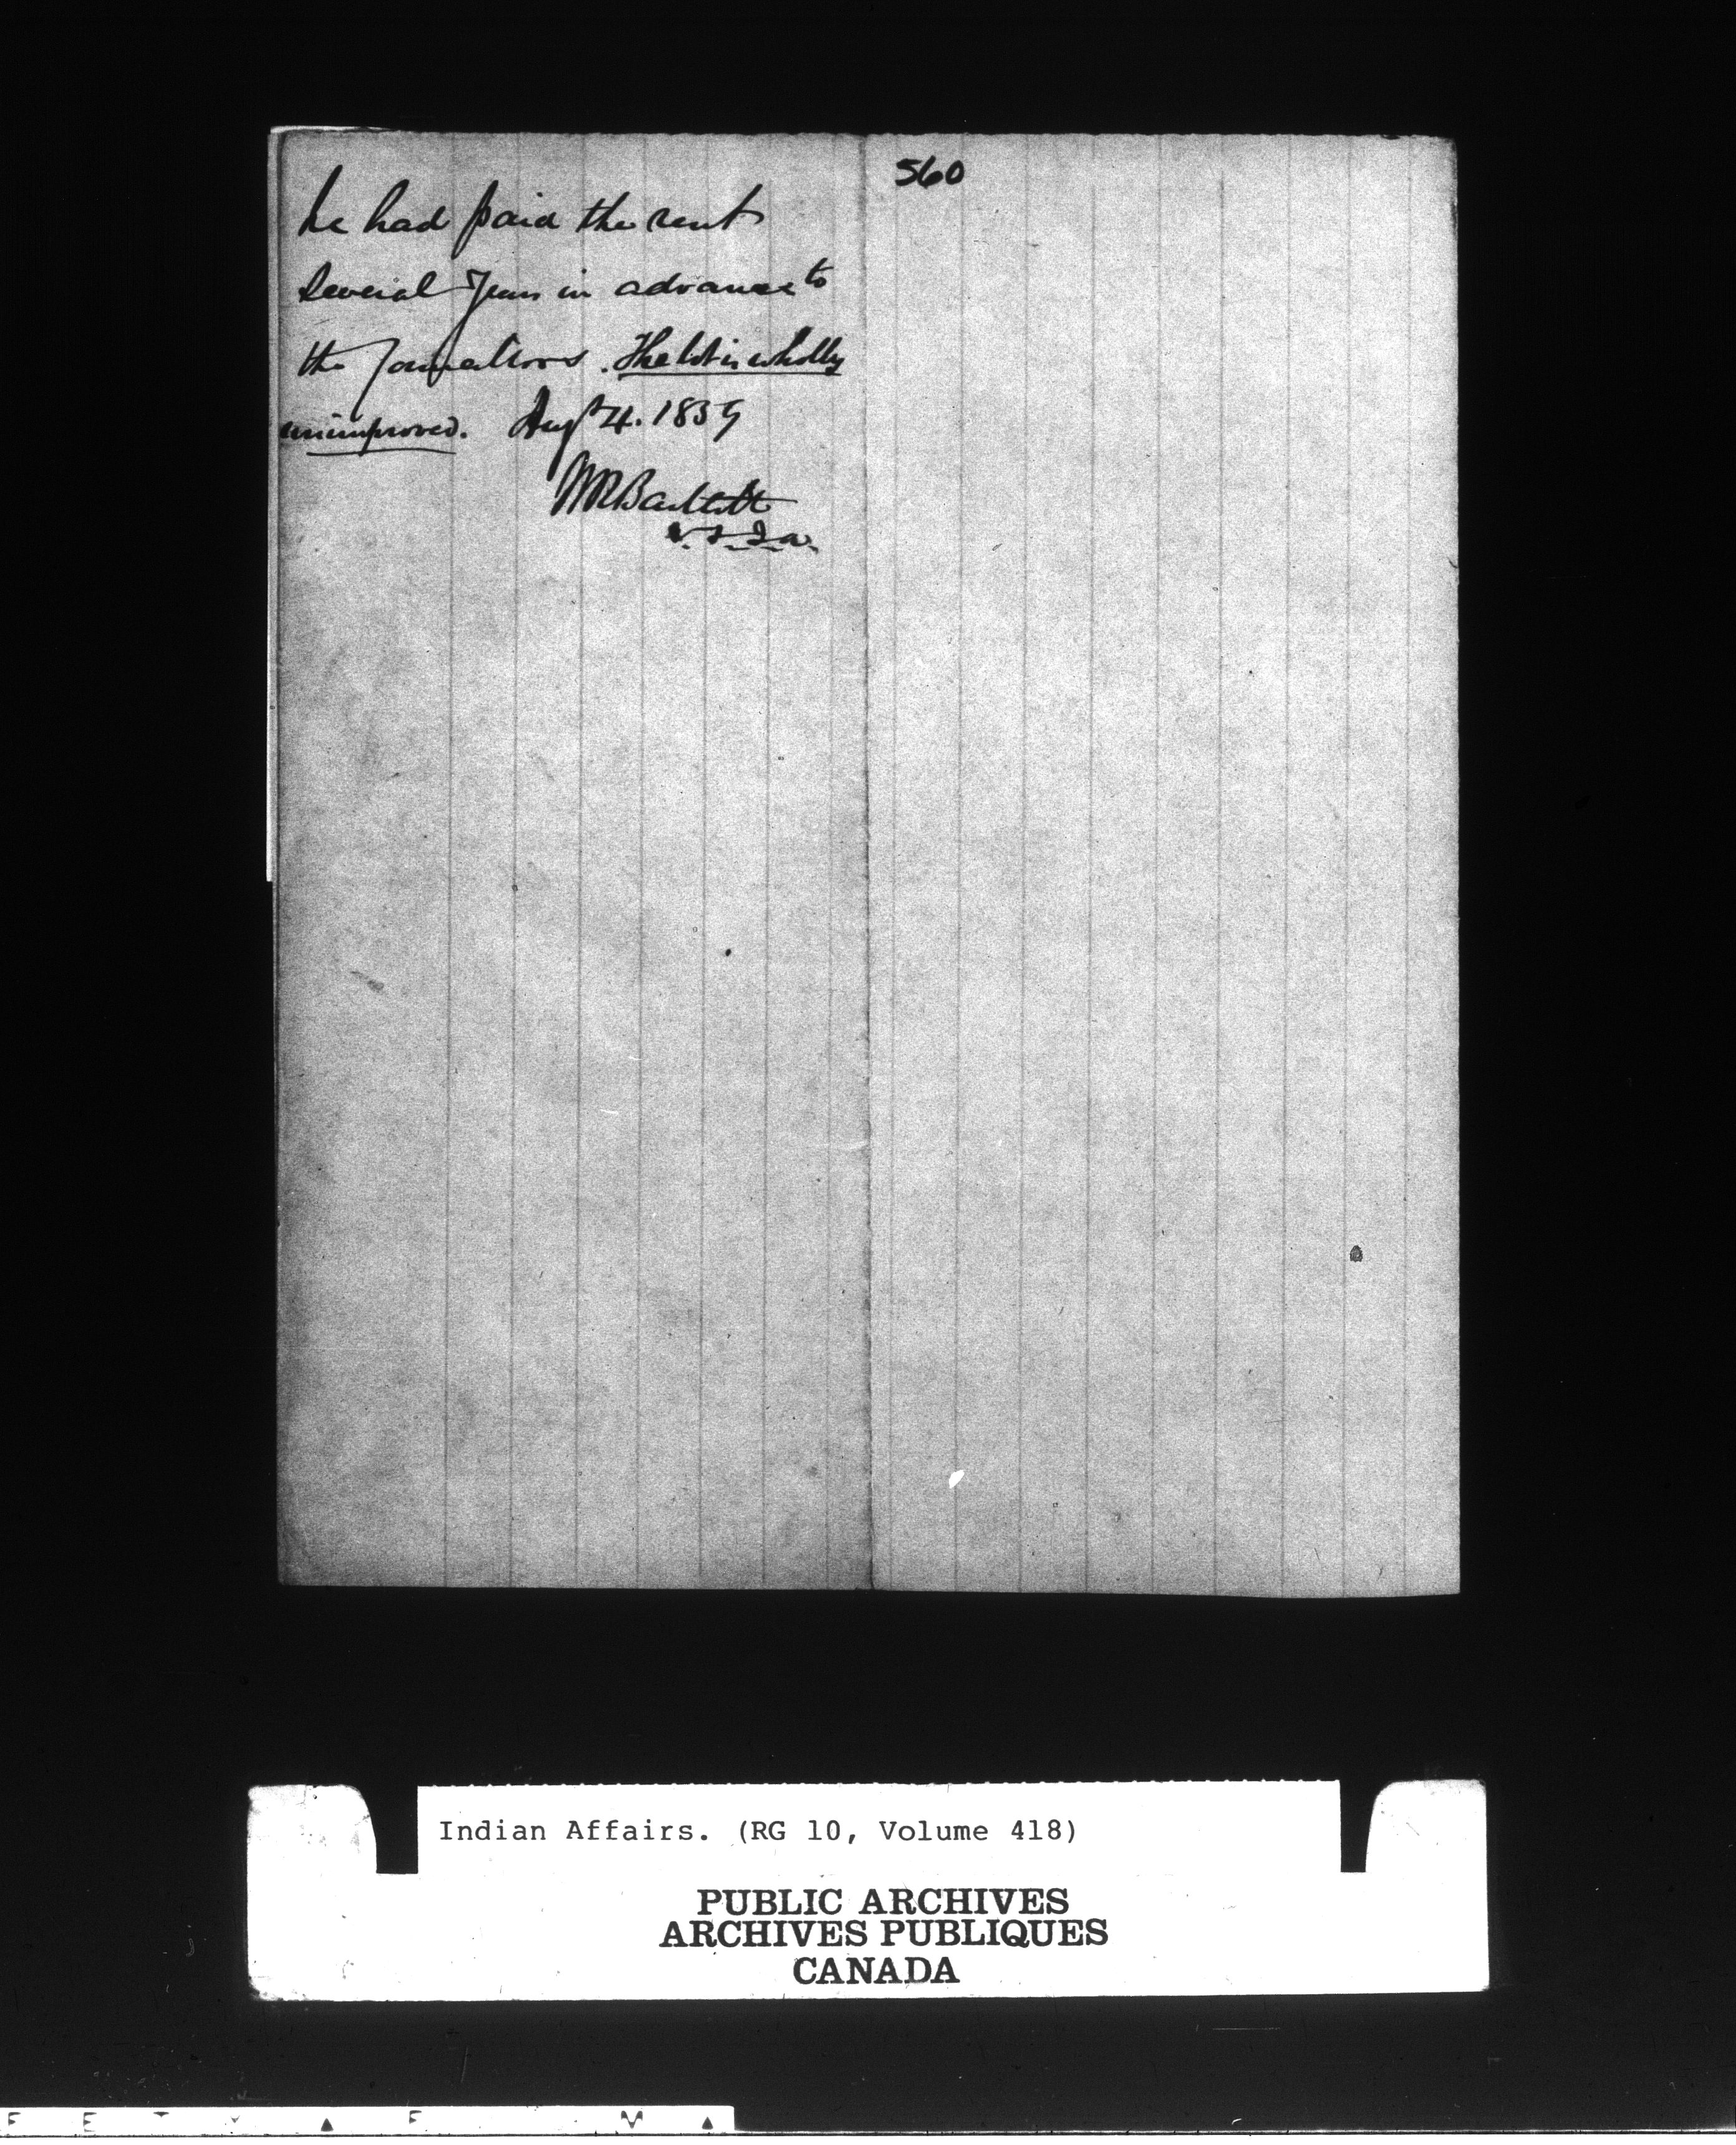 he had paid the rent
several years in advance to
the . The lot is wholly
unimproved. Augt 4. 1859
WRBartlett
V.S.I.a.
560
Indian Affairs. (RG 10, Volume 418)
PUBLIC ARCHIVES
ARCHIVES PUBLIQUES
CANADA